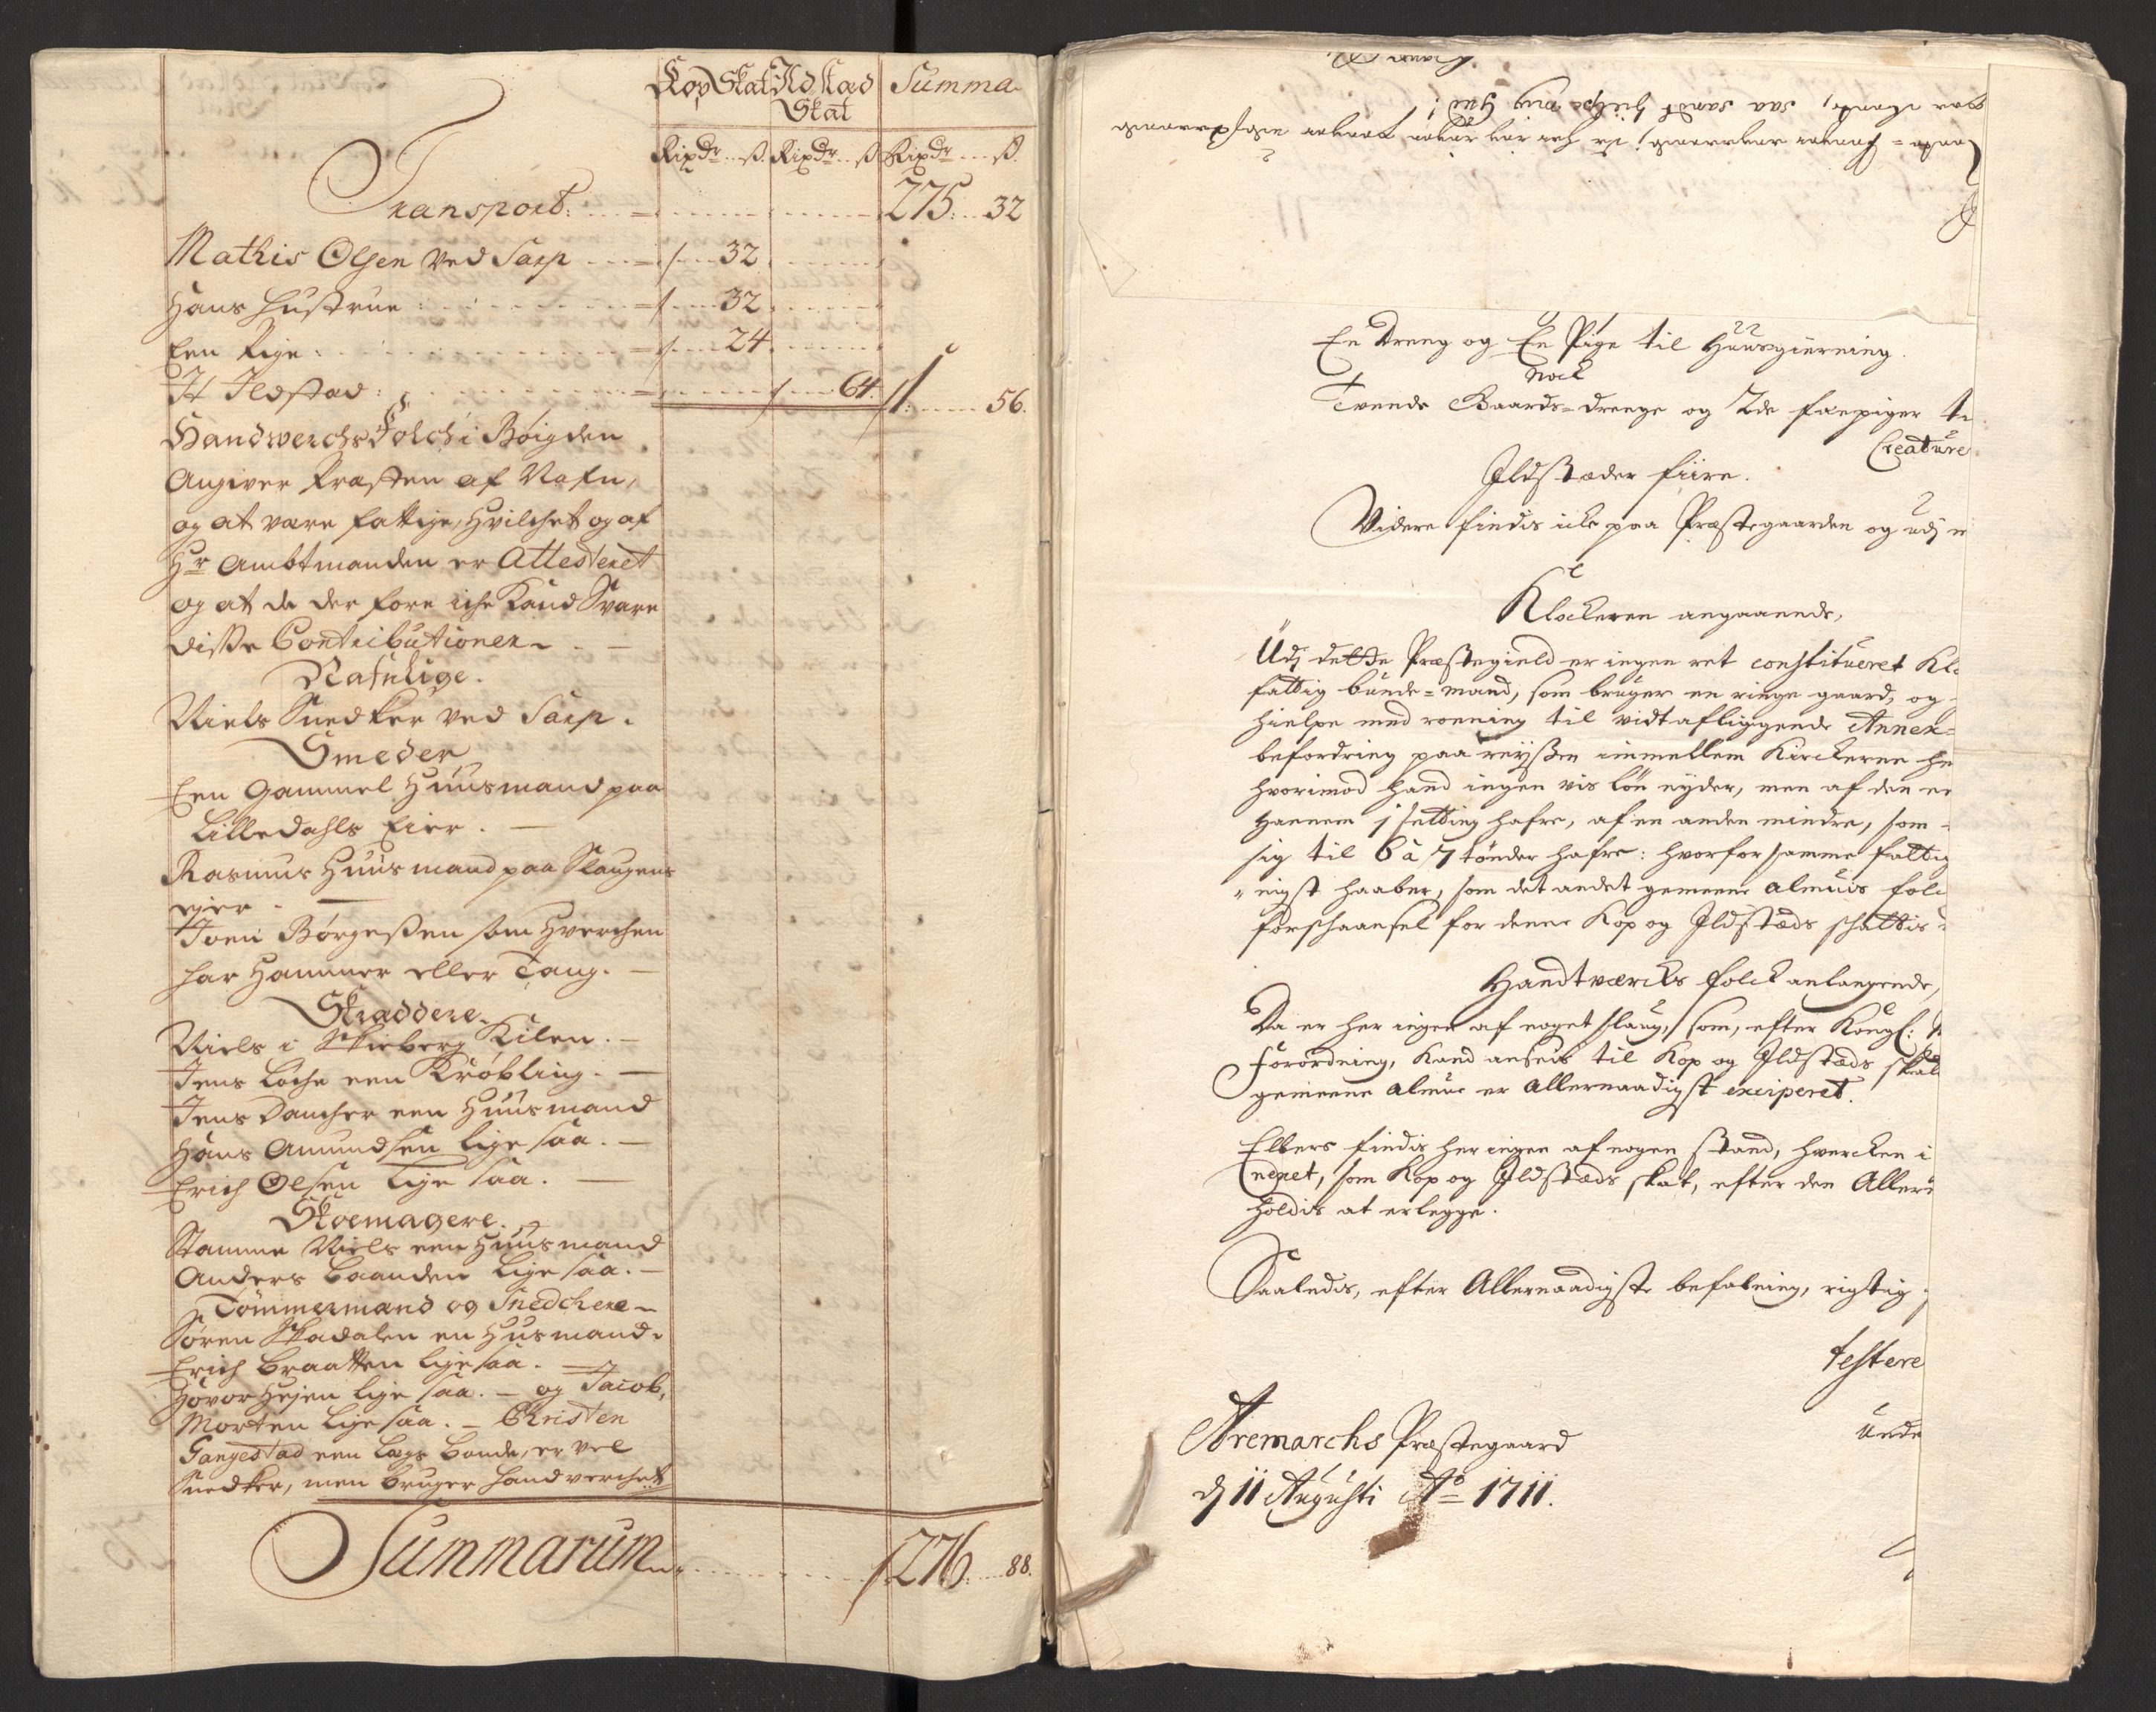 Kop Skat Ild Stad Skat Summa
Rixdr ß. Rixdr ß Rixdr ß.
Transport: 275: 32
Mathis Olsen ved Sarp 32
Hans Hustrue 32
Een Pige 24
It Ildstad: 64. 1: 56.
Handwerchs Folch i Bøigden
Angiver Præsten af Nafn,
og at være fattige, hvilchet og af
Hr Ambtmanden er Attesteret
og at de der fore iche kand Svare
disse Contributioner
Nafnlige.
Niels Snedker ved Sarp.
Smeder
Een Gammel Huusmand paa
Lilledahls Eier.
Rasmus Huusmand paa Slaugens
eier
Joen Børgesen som hverchen
har Hammer eller Tang.
Skraddere
Niels i Skieberg Kilen.
Jens Løche een Krøbling.
Jens Dancher een Huusmand
Hans Amundsen lige saa.
Erich Olsen lige saa.
Skoemagere.
Stamme Niels een Huusmand
Anders Baanden lige saa.
Tømmermænd og Snedchere
Søren Skadalen en Husmand.
Erich Braatten lige saa.
Hovor Heien lige saa. og Jacob,
Morten lige saa. Christen
Gangestad een Lægs Bonde, er vel
Snedker, men bruger handverchet
Summarum 276: 88.
En Dreng og En Pige til Huusgierning.
Nock
Tvende Gaards-drenge og 2de faepiger ti
Creature
Ildstæder fiire.
Videre findis icke paa Præstegaarden og udj
Klockeren angaaende,
Udj dette Præstegield er ingen ret constitueret Klo
fattig bunde-mand, som bruger en ringe gaard, og
hielpe med roening til vidtafliggende Annex-
befordring paa reyßen imellem Kirckerne
hvorimod hand ingen vis løn nyder, men af den en
hannem 1 setting hafre, af en anden mindre, som
sig til 6 à 7 tønder hafre: hvorfor samme fattig
nigst haaber, som det andet gemeene almuis folc
forschaansel for denne Kop og Ildstæds schattis
Handtværcks folck anlangende,
Da er her ingen af noget slaug, som, efter Kongl:
Forordning, kand ansees til Kop og Ildstæds skat
gemeene almue er allernaadigst exciperet.
Ellers findis her ingen af nogen stand, hvercken i
negnet, som Kop og Ildstæds skat, efter den Aller
holdis at erlegge.
Saaledis, efter Allernaadigste befalning, rigtig
testere
Aremarchs Præstegaard
Unde
dj 11 Augusti Ao 1711.